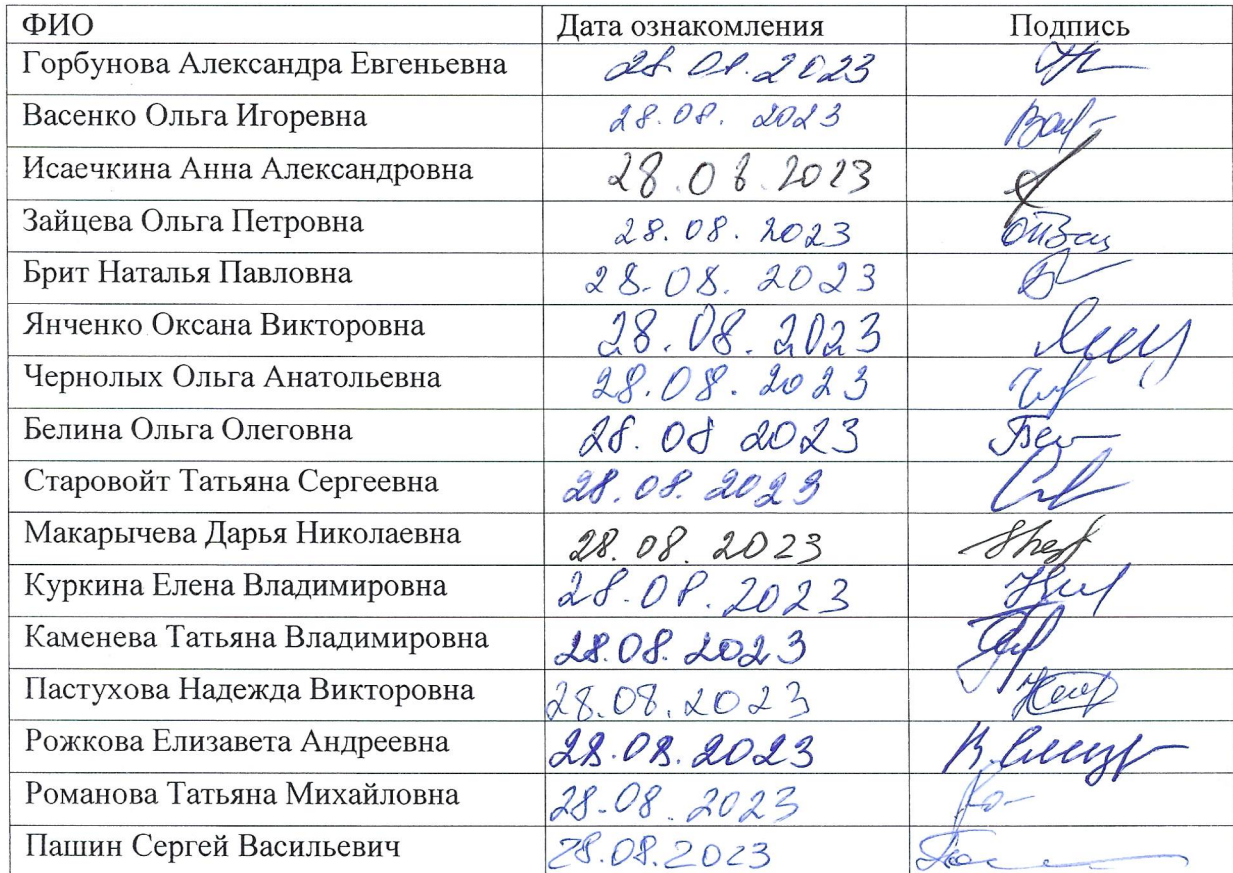 ФИО Дата ознакомления Подпись
Горбунова Александра Евгеньевна 28.08.2023
Васенко Ольга Игоревна 28.08.2023
Исаечкина Анна Александровна 28.08.2023
Зайцева Ольга Петровна 28.08.2023
Брит Наталья Павловна 28.08.2023
Янченко Оксана Викторовна 28.08.2023
Чернолых Ольга Анатольевна 28.08.2023
Белина Ольга Олеговна 28.08 2023
Старовойт Татьяна Сергеевна 28.08.2023
Макарычева Дарья Николаевна 28.08.2023
Куркина Елена Владимировна 28.08.2023
Каменева Татьяна Владимировна 28.08.2023
Пастухова Надежда Викторовна 28.08.2023
Рожкова Елизавета Андреевна 28.08.2023
Романова Татьяна Михайловна 28.08.2023
Пашин Сергей Васильевич 28.08.2023